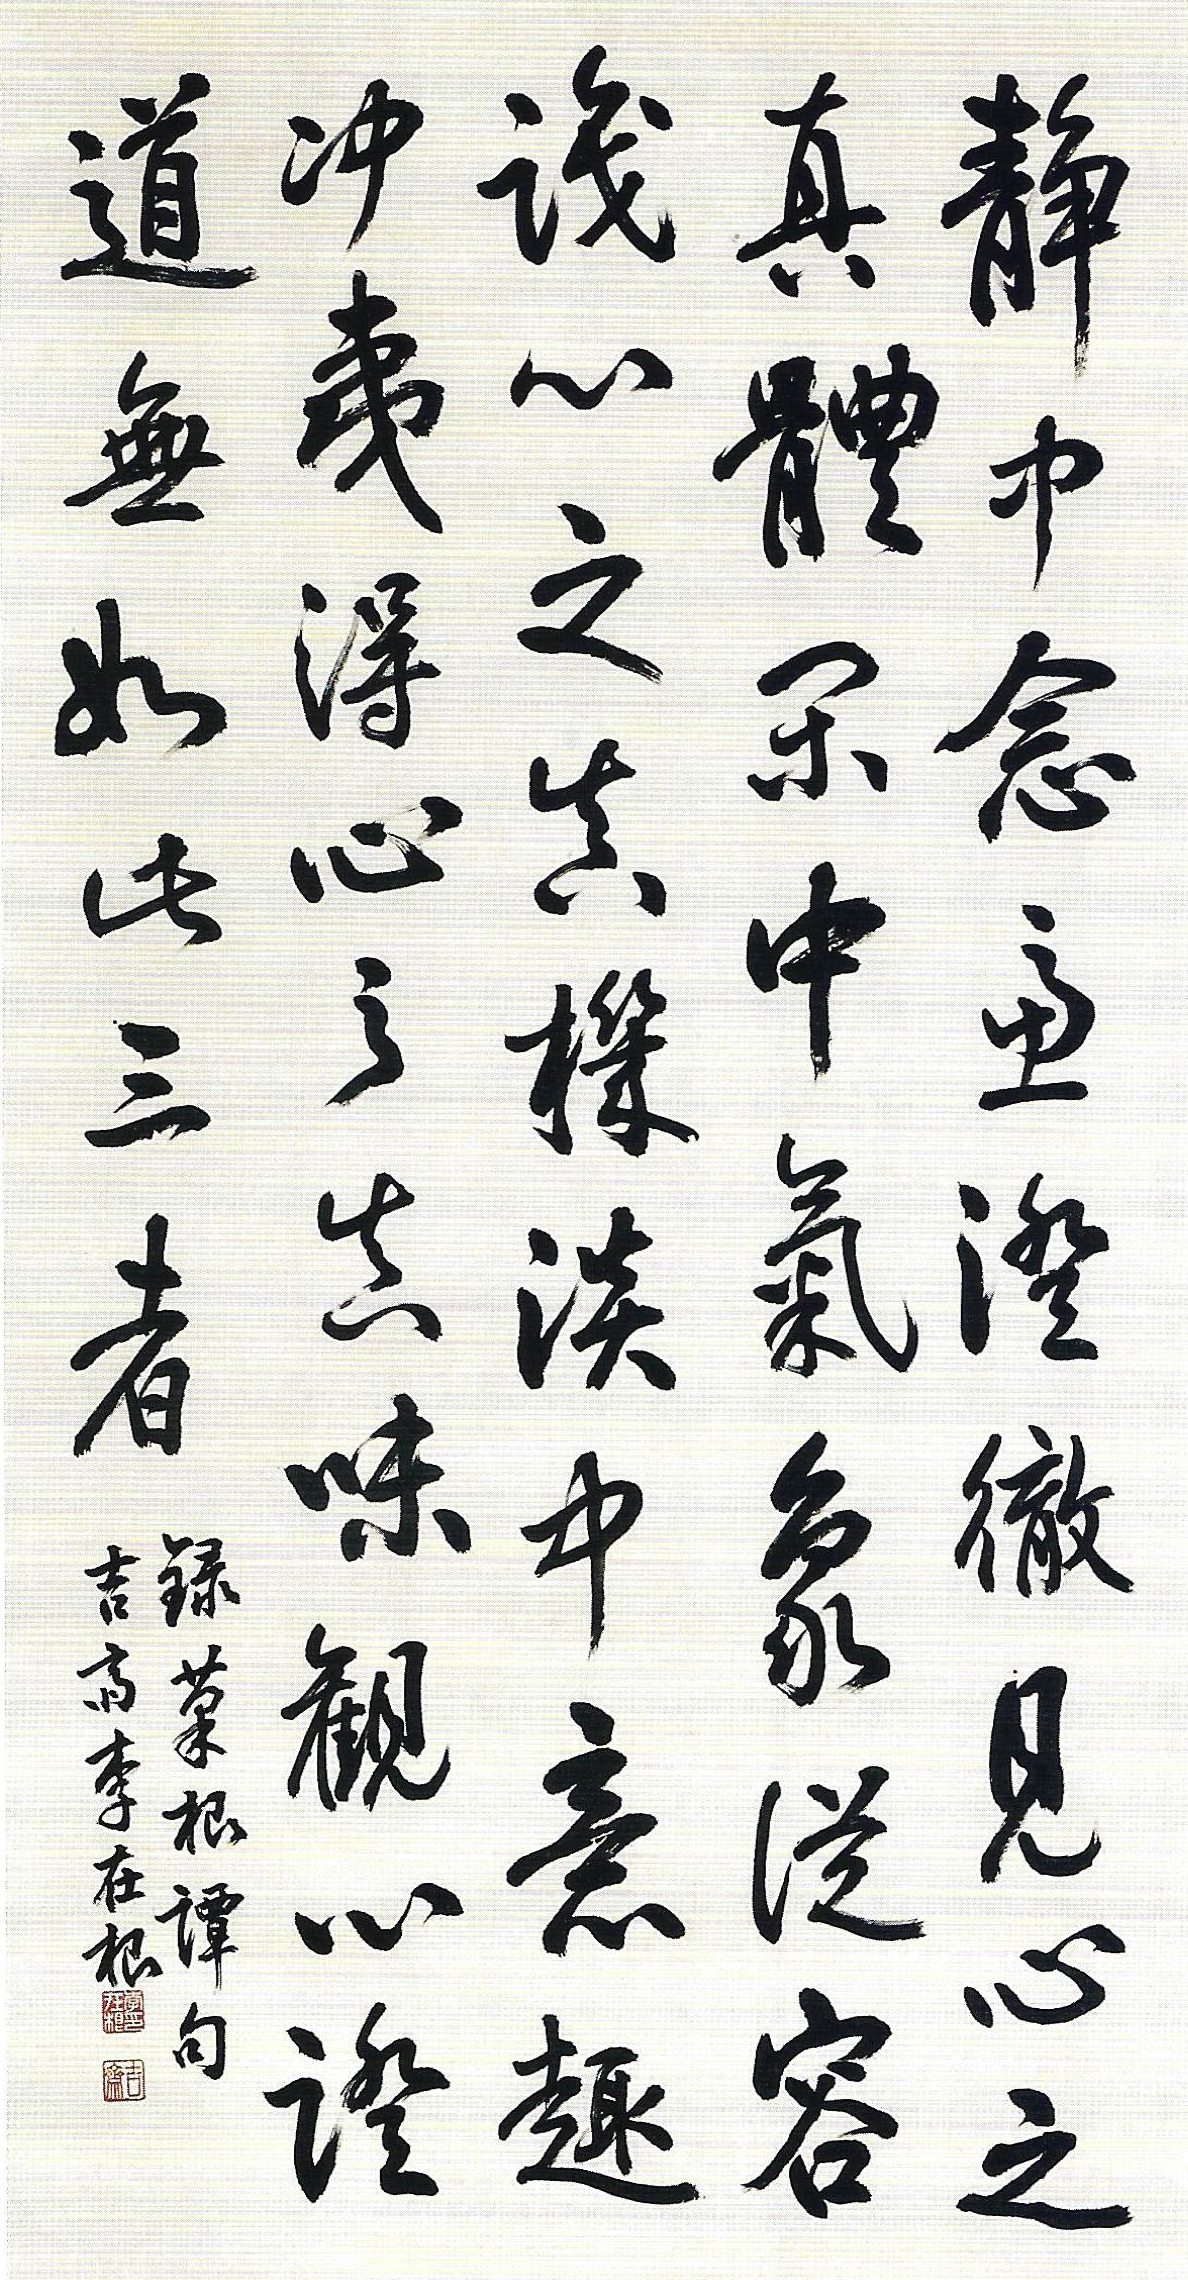 靜中念慮澄徹見心之
真體閑中氣象從容
識心之真機淡中意趣
冲夷得心之真味觀心證
道無如此三者
錄菜根譚句
吉齋李在根
吉齋